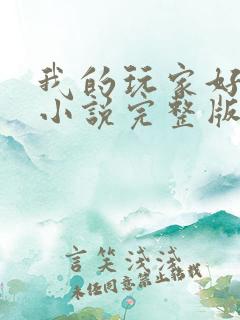 我的玩家好
小説完整版
言笑浅浅
未经同意禁止转载